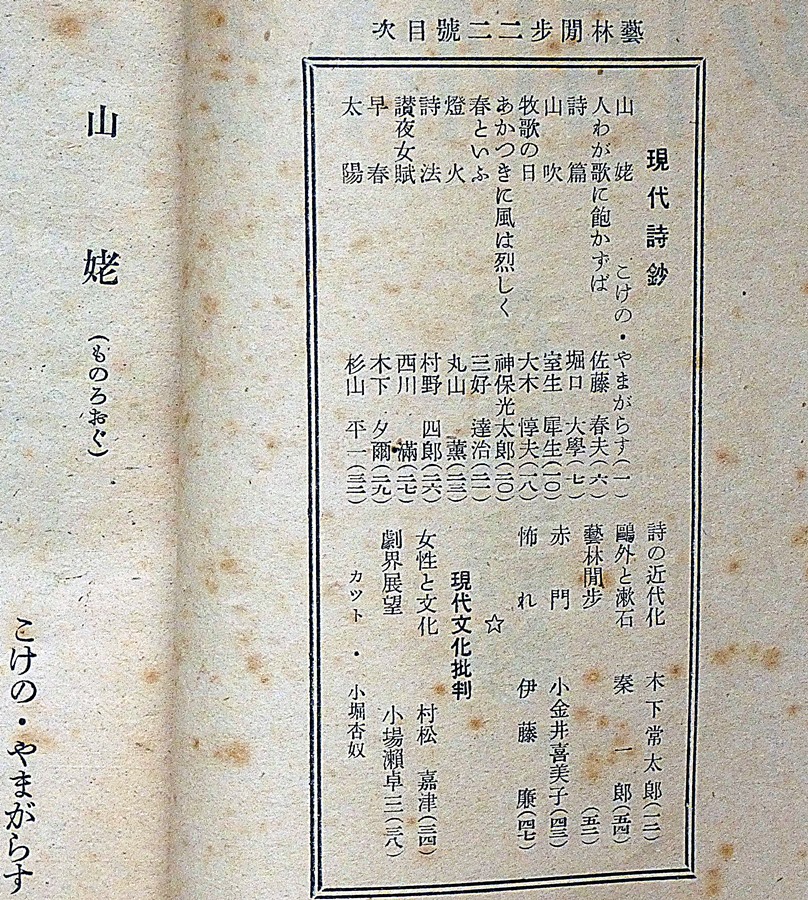 藝林閒步二二號目次
現代詩鈔
山姥 こけの・やまがらす(一)
人わが歌に飽かずば 佐藤春夫(六)
詩篇 堀口大學(七)
山吹 室生犀生(一〇)
牧歌の日 大木惇夫(一八)
あかつきに風は烈しく 神保光太郎(二〇)
春といふ 三好達治(二一)
燈火 丸山薫(二三)
詩法 村野四郎(二六)
讃夜女賦 西川滿(二七)
早春 木下夕爾(二九)
太陽 杉山平一(三二)
詩の近代化 木下常太郎(一二)
鷗外と漱石 秦一郎(五四)
藝林閒步 (五二)
赤門 小金井喜美子(四三)
怖れ 伊藤廉(四七)
☆
現代文化批判
女性と文化 村松嘉津(三四)
劇界展望 小場瀬卓三(三八)
カツト・小堀杏奴
山姥 (ものろおぐ)
こけの・やまがらす